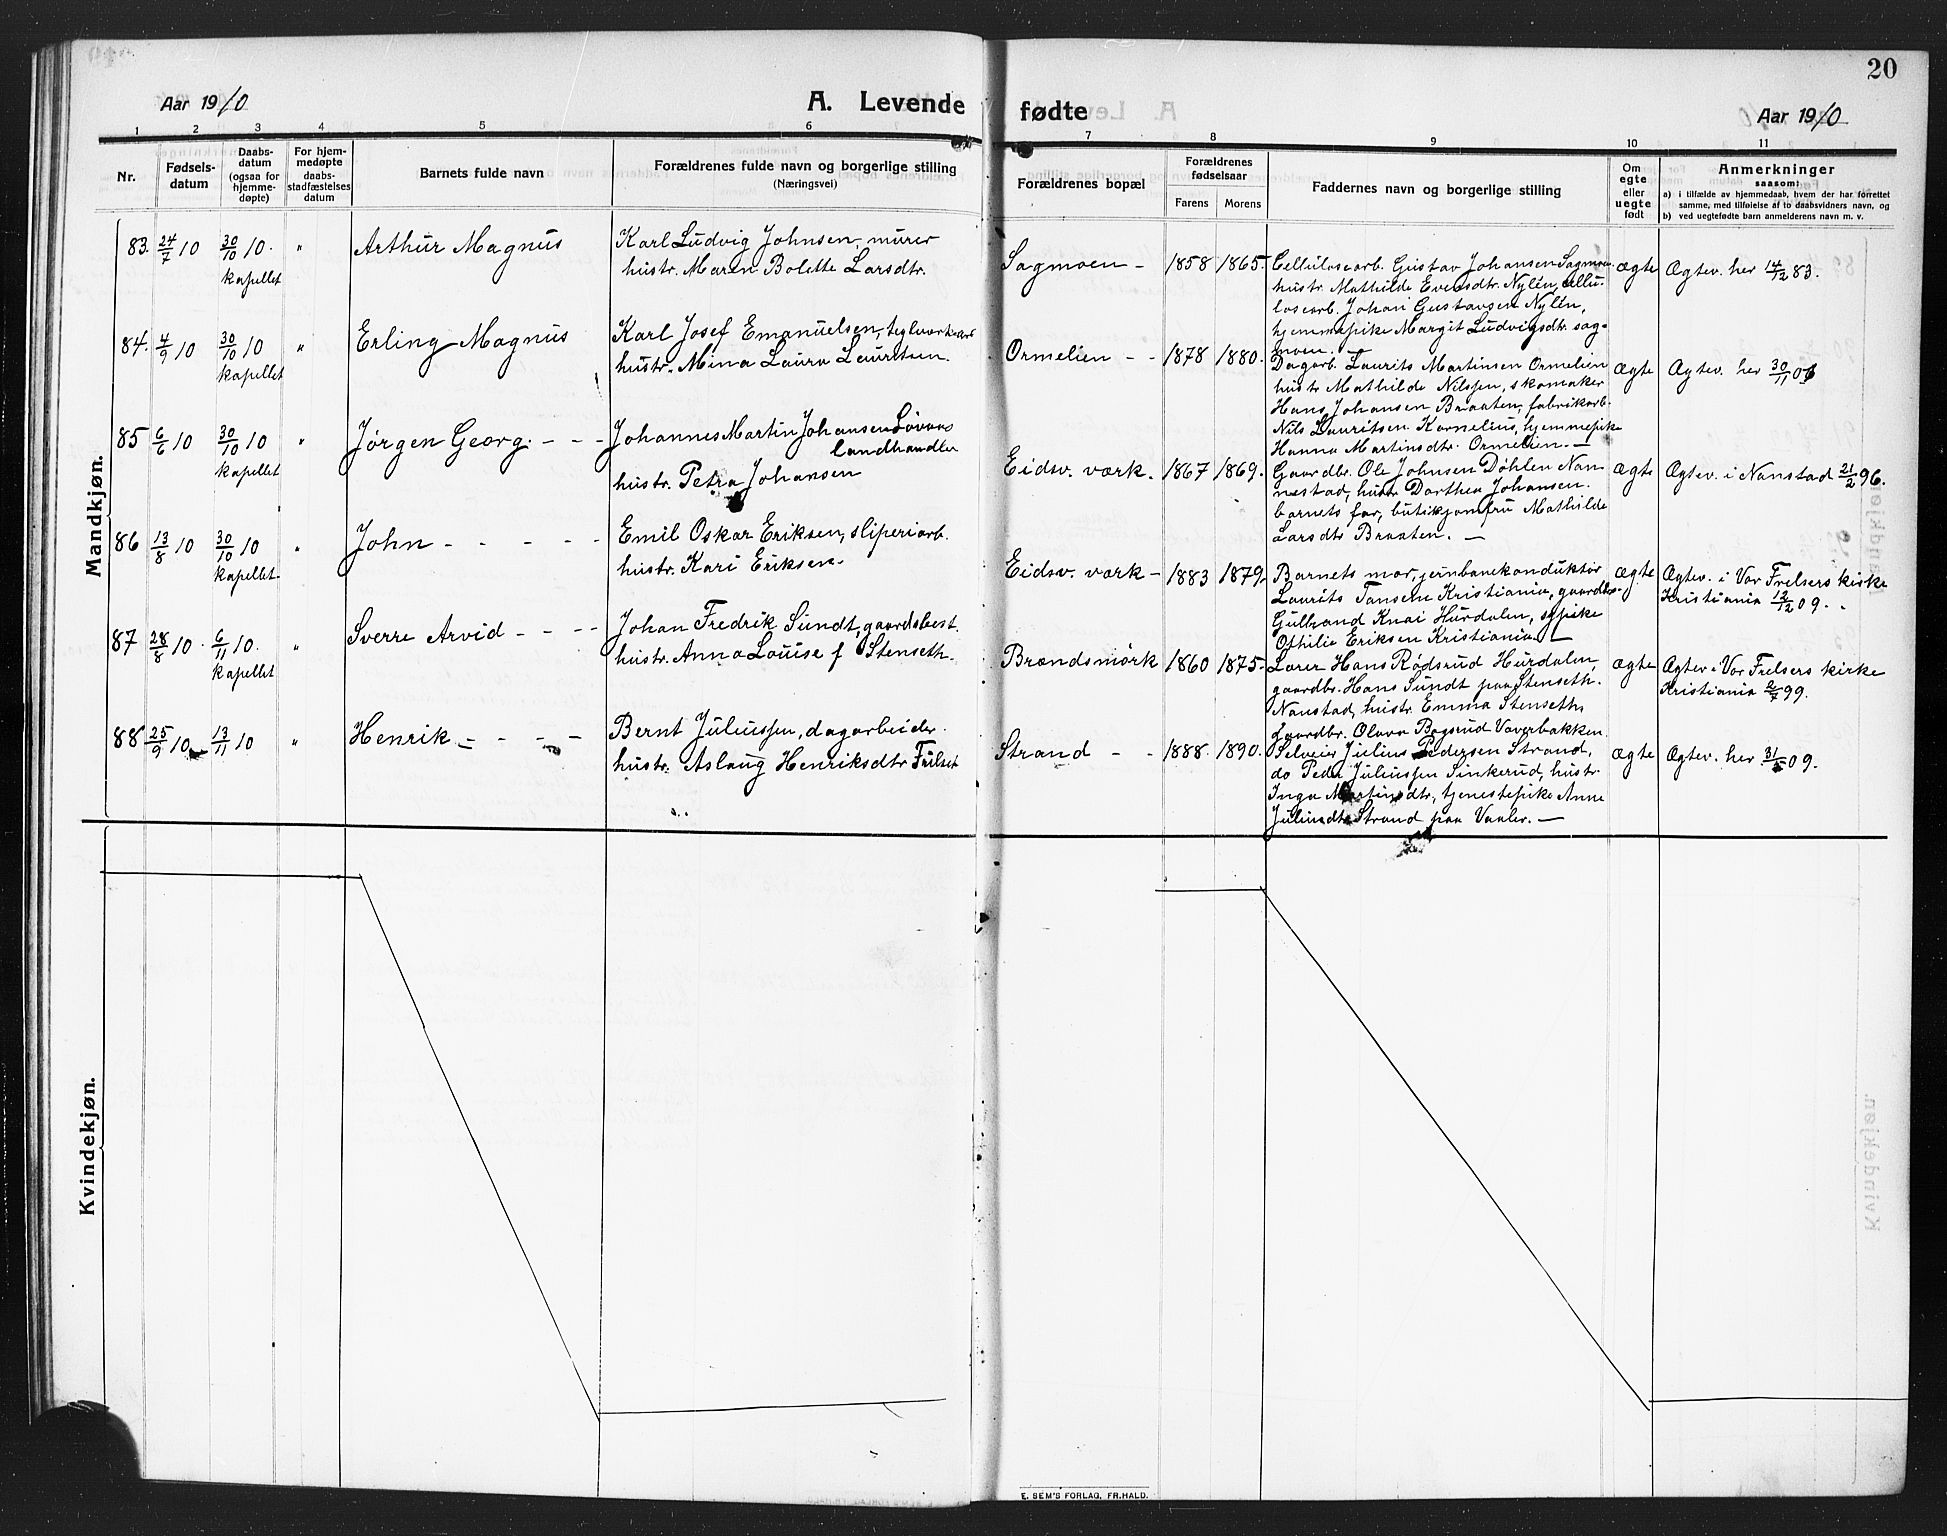 20
Aar 1910
A. Levende fødte
Aar 1910
1 2 3 4 5 6 7 8 9 10 11
Nr.
Fødsels-
datum
Daabs-
datum
(ogsaa for
hjemme-
døpte)
For hjem-
medøpte
daabs-
stadfæstelses
datum
Barnets fulde navn
Forældrenes fulde navn og borgerlige stilling
(Næringsvei)
Forældrenes bopæl
Forældrenes
fødselsaar
Farens Morens
Faddernes navn og borgerlige stilling
Om
egte
eller
uegte
født
Anmerkninger
saasom:
a) i tilfælde av hjemmedaab, hvem der har forrettet
samme, med tilføielse af to daabsvidners navn, og
b) ved uegtefødte barn anmelderens navn m. v.
Mandkjøn.
83. 24/7 10 30/10 10. "
kapellet
Arthur Magnus
Karl Ludvig Johnsen, murer
hustr. Maren Bolette Larsdtr.
Sagmoen -
1858 1865.
Celluloscarb. Gustav Johansen Sagmoen
hustr. Mathilde Evensdtr. Nylén, cellu-
losearb. Johan Gustavsen Nylén,
hjemmepike Margit Ludvigsdtr. sag-
moen.
ægte
Ægtev. her 14/12 83.
84. 4/9 10 30/10 10 "
kapellet
Erling Magnus
Karl Josef Emanuelsen, teglverksarb
hustr. Mina Laura Lauritsen.
Ormelien - -
1878 1880.
Dagarb. Laurits Martinsen Ormelien
hustr Mathilde Nilssen, skomaker
Hans Johansen Braaten, fabrikarb.
Nils Lauritsen Kornelius, hjemmepike
Hanna Martinsdtr. Ormelien. -
ægte
Ægtev. her 30/11 06
85 6/6 10 30/10 10 "
kapellet
Jørgen Georg. - - -
Johannes Martin Johansen Løvaas
landhandler
hustr. Petra Johansen
Eidsv. værk.
1867 1869.
Gaardbr. Ole Johnsen Døhlen Nan-
nestad, hustr Dorthea Johansen.
barnets far, butikjomfru Mathilde
Larsdtr Braaten. -
ægte
Ægtev. i Nanstad 21/2 96.
86 13/8 10 30/10 10 "
kapellet
John - - - - -
Emil Oskar Eriksen, sliperiarb.
hustr. Kari Eriksen.
Eidsv. værk -
1883 1879.
Barnets mor, jernbanekonduktør
Laurits Jansen Kristiania, gaardbr.
Gulbrand Knai Hurdalen, sypike
Othilie Eriksen Kristiania. -
ægte
Ægtev. i Vor Frelsers kirke
Kristiania 12/12 09.
87 28/8 10. 6/11 10. "
kapellet
Sverre Arvid - - - -
Johan Fredrik Sundt, gaardsbest.
hustr. Anna Louise f Stenseth.
Brændsmørk
1860 1875.
Lærer Hans Rødsrud Hurdalen,
gaardbr. Hans Sundt paa Stenseth.
Nanstad, hustr. Emma Stenseth,
Gaardbr. Olava Bøgsrud Væverbakken.
ægte
Ægtev i Vor Frelsers kirke
Kristiania 2/7 99.
88 25/9 10 13/11 10 "
Henrik - - - -
Bernt Juliussen, dagarbeider.
hustr. Aslaug Henriksdtr Frilset
Strand - -
1888. 1890.
Selveier Julius Pedersen Strand,
do Peder Juliussen Sinkerud, hustr.
Inga Martinsdtr, tjenestepike Anne
Juliusdtr Strand paa Vaaler. -
ægte
Ægtev. her 09.
Kvindekjøn.
E. SEM'S FORLAG, FR.HALD.